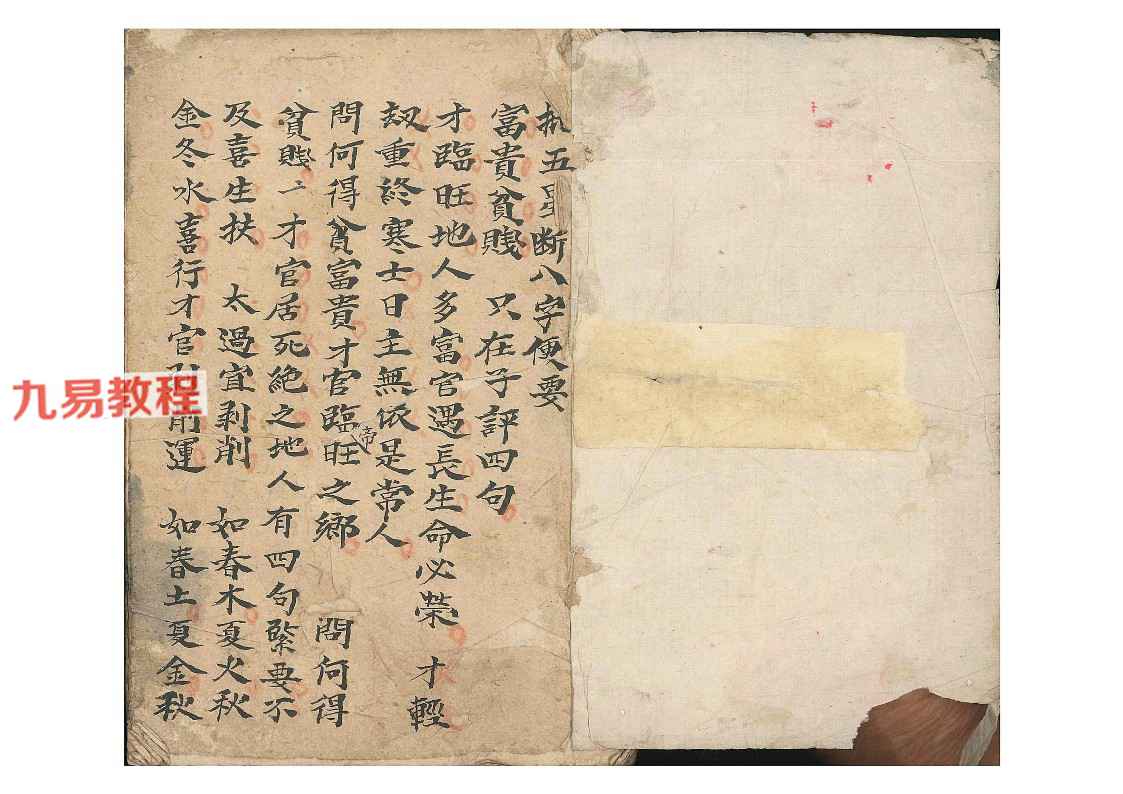 五星断八字便要
富貴貧賤 只在子評四句
才臨旺地人多富官遇長生命必榮 才輕
劫重終寒士日主無依是常人
問何得貧富貴才官臨帝旺之鄉 問何得
貧賤〻才官居死絶之地人有四句緊要不
及喜生扶 太過宜剥削 如春木夏火秋
金冬水喜行才官 運 如春土夏金秋
九易教程